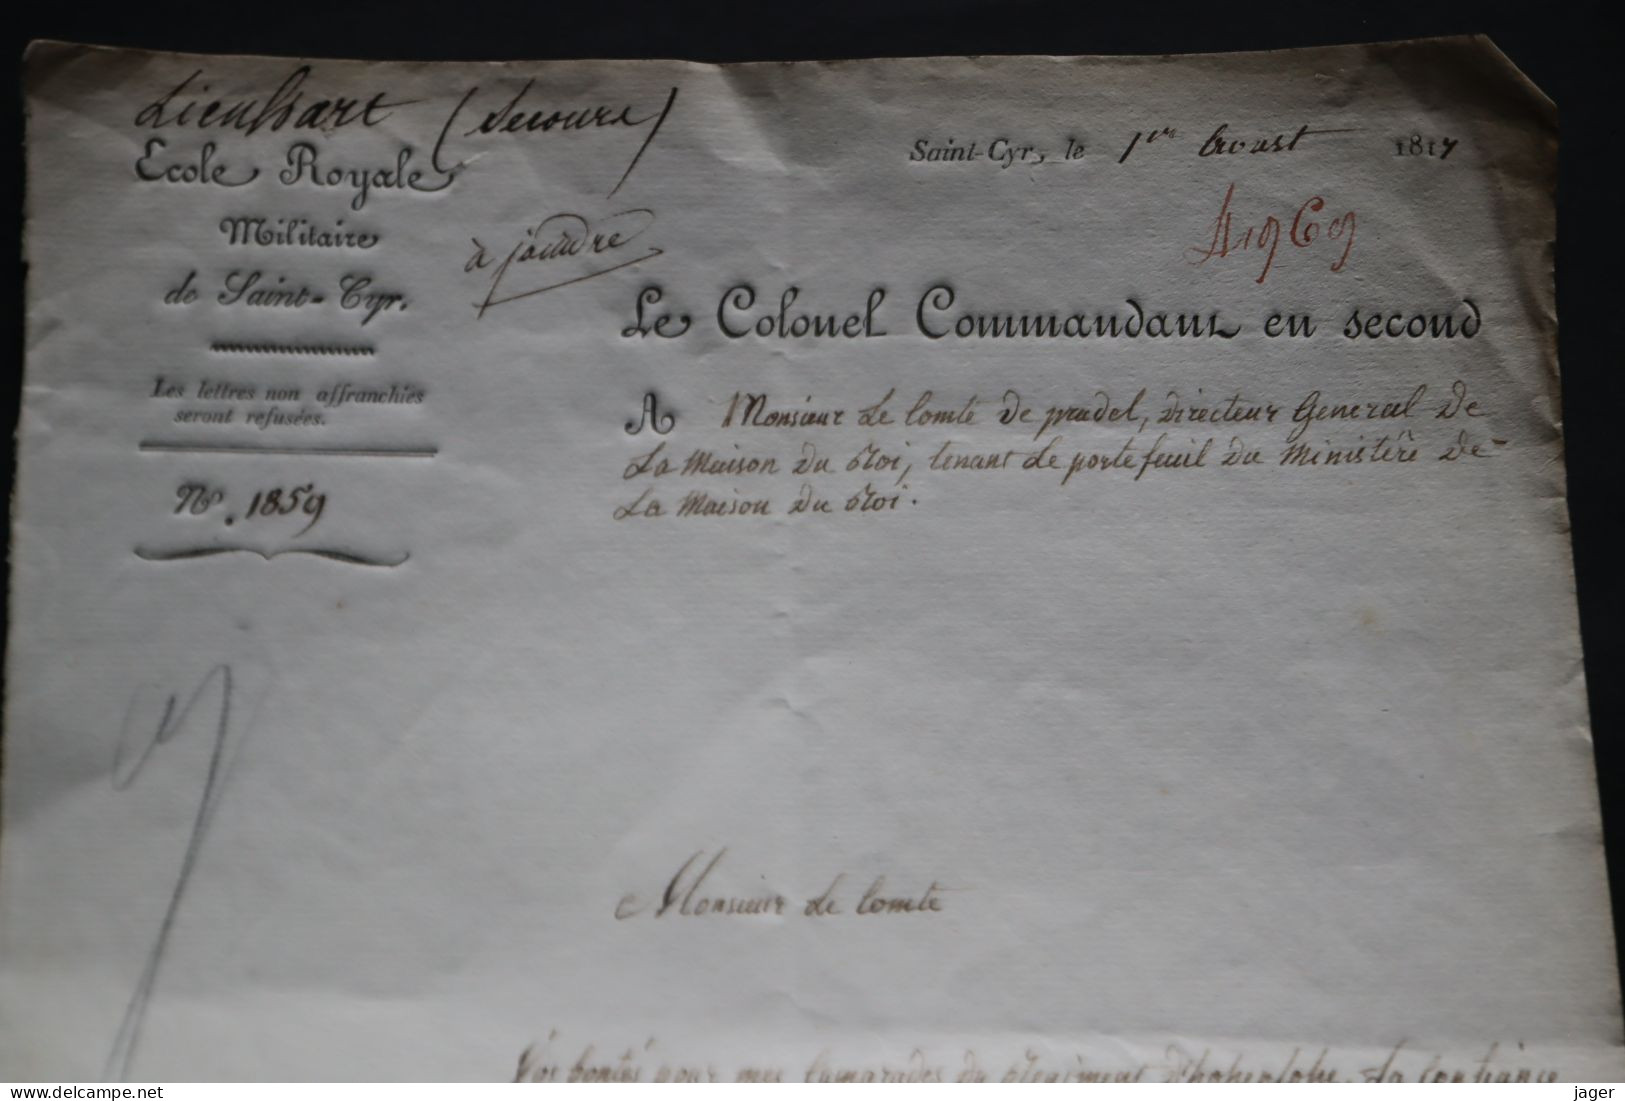 Lieussart (Secours)
Ecole Royale
Militaire
de Saint-Cyr.
Les lettres non affranchies
seront refusées.
No. 1859
à joindre
Saint-Cyr, le 1er Aoust 1817
Le Colonel Commandant en second
A Monsieur Le Comte De pradel, Directeur General De
La Maison Du Roi, tenant Le porte feuil Du Ministère De
La Maison Du Roi.
Monsieur Le Comte
Vos bontés pour mes Camarades Du Regiment D'hohenlohe, La Confiance
www.delcampe.net
jager